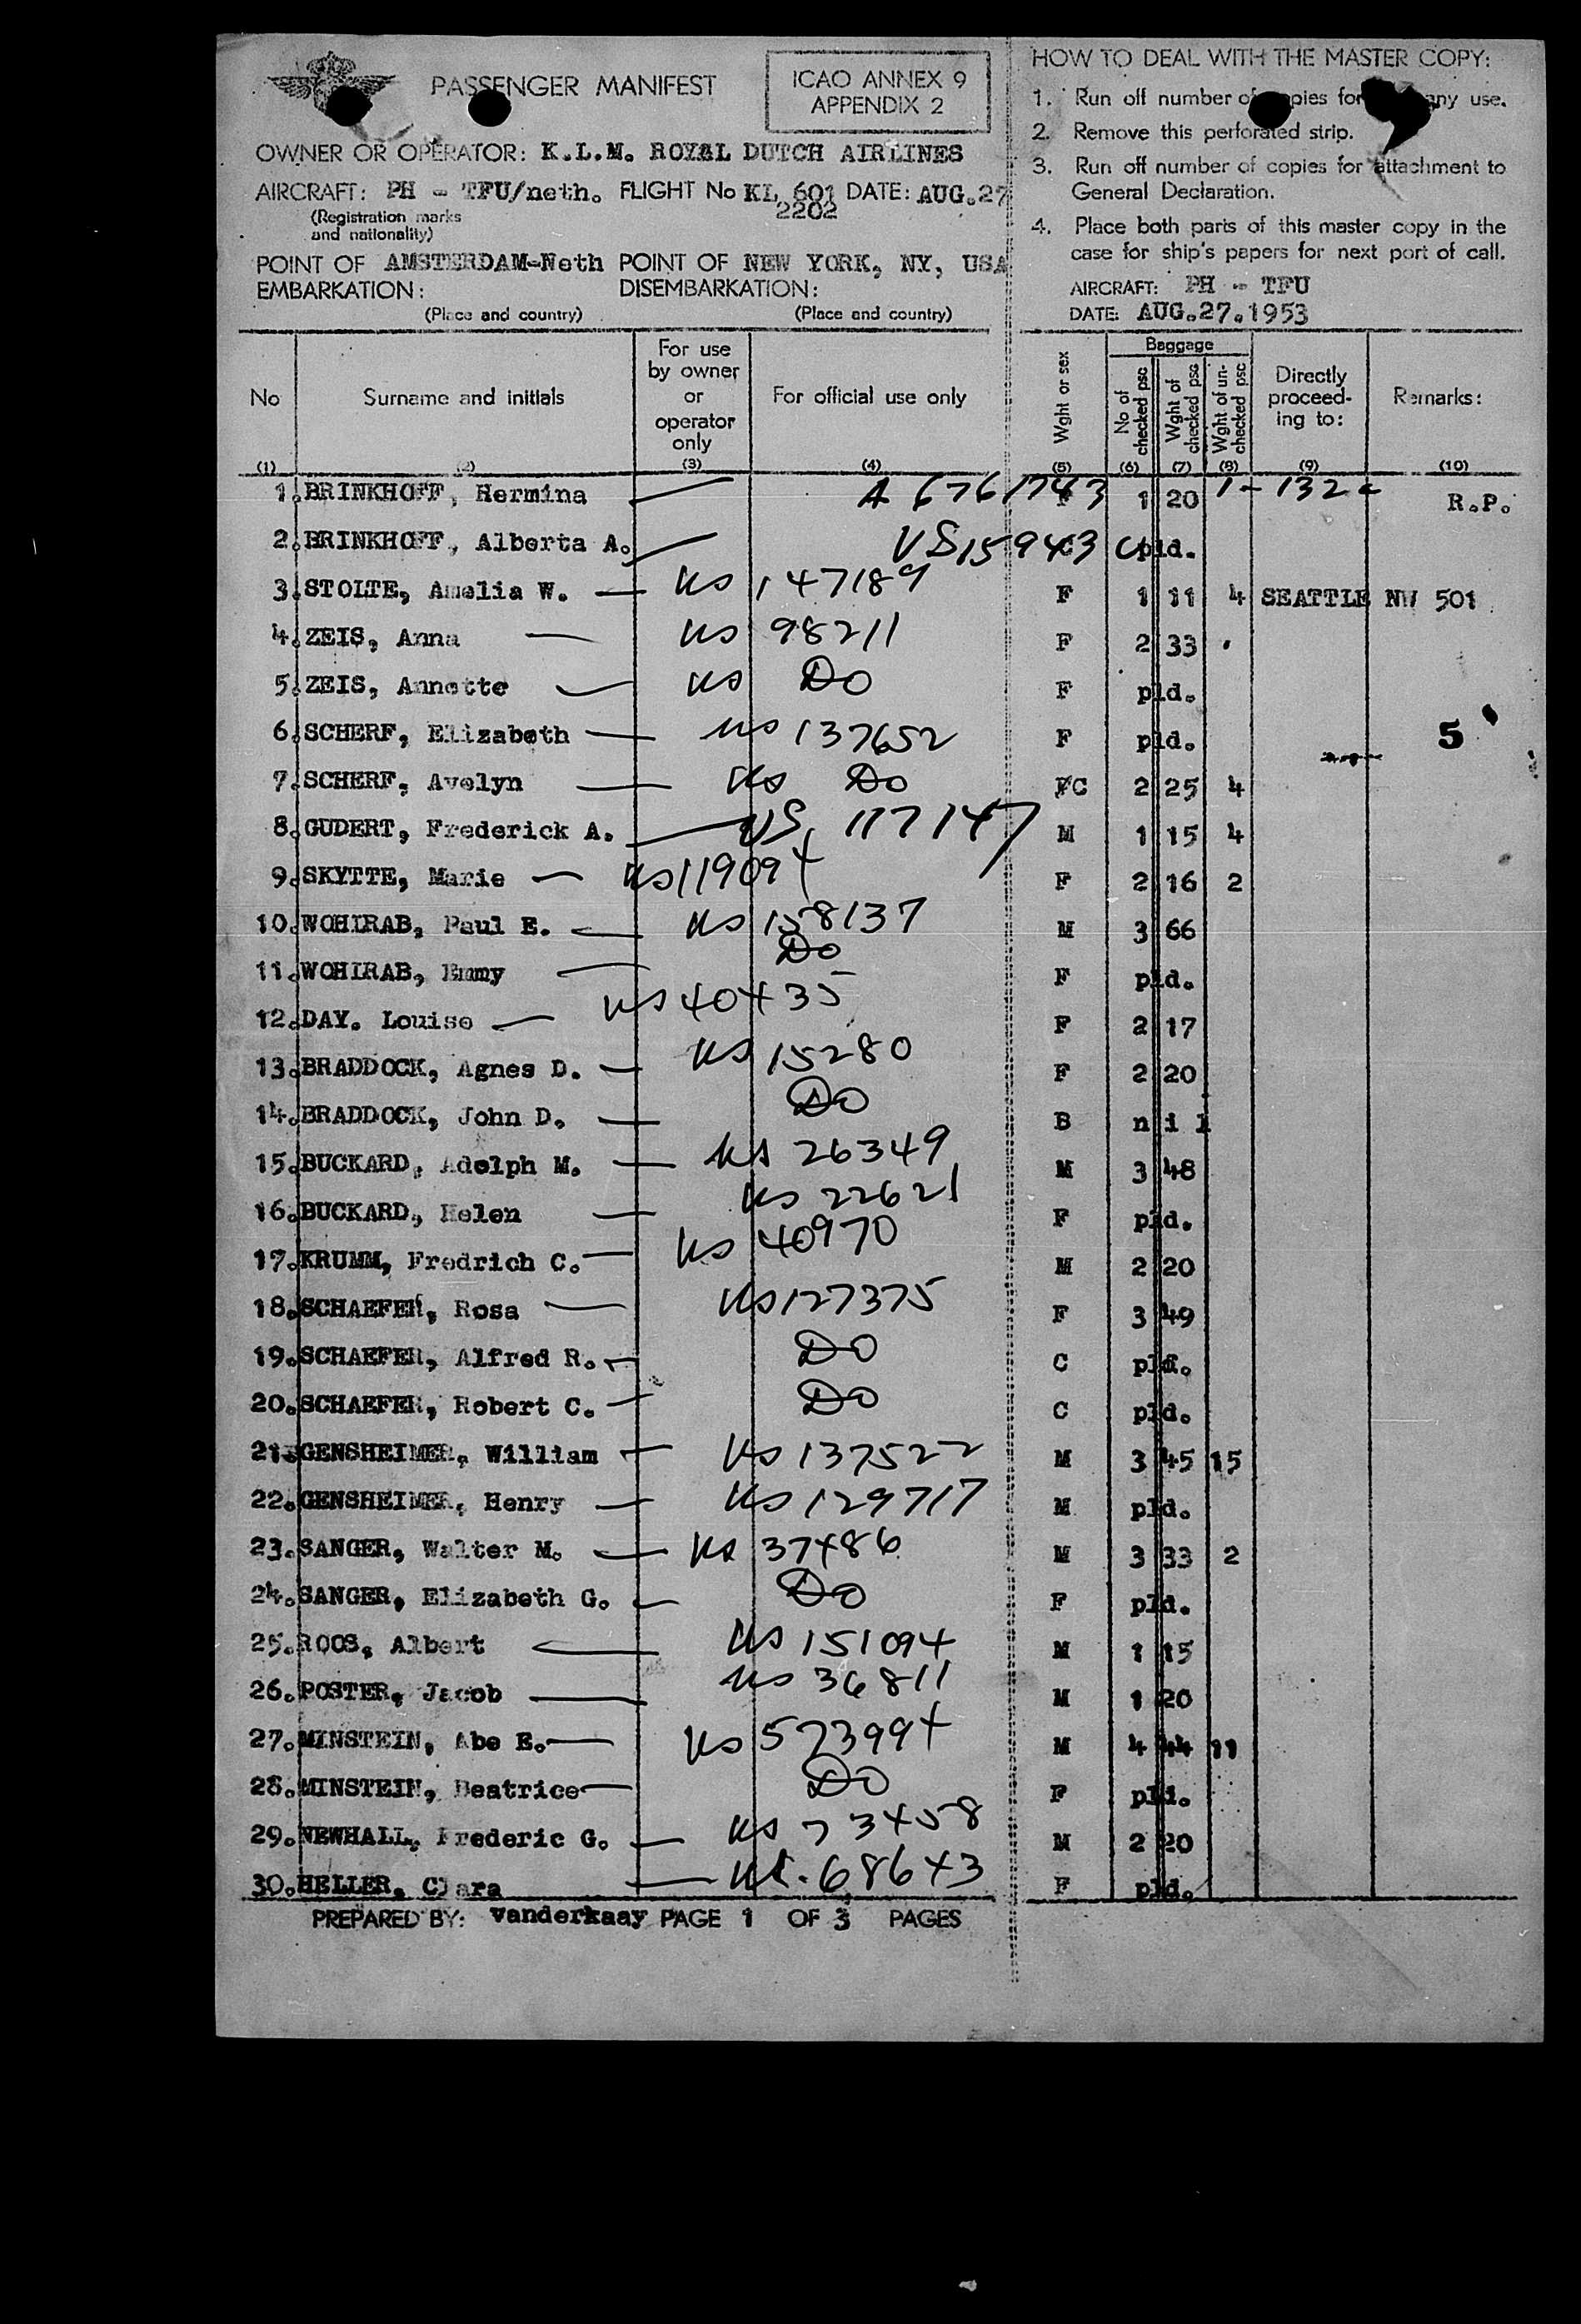 PASSENGER MANIFEST
ICAO ANNEX 9
APPENDIX 2
OWNER OR OPERATOR: K.L.M. ROYAL DUTCH AIRLINES
AIRCRAFT: PH - TFU/neth. FLIGHT No KL 601 DATE: AUG.27
2202
(Registration marks
and nationality)
POINT OF AMSTERDAM-Neth POINT OF NEW YORK, NY, USA
EMBARKATION: DISEMBARKATION:
(Place and country) (Place and country)
HOW TO DEAL WITH THE MASTER COPY:
1. Run off number of copies for any use.
2. Remove this perforated strip.
3. Run off number of copies for attachment to
General Declaration.
4. Place both parts of this master copy in the
case for ship's papers for next port of call.
AIRCRAFT: PH - TFU
DATE: AUG.27.1953
No Surname and initials For use by owner or operator only For official use only Wght or sex Baggage No of checked psc Wght of checked psc Wght of un-checked psc Directly proceed-ing to: Remarks:
(1) (2) (3) (4) (5) (6) (7) (8) (9) (10)
1. BRINKHOFF, Hermina A 6761743 F 1 20 1 - 132 R.P.
2. BRINKHOFF, Alberta A. VS159443 C pld.
3. STOLTE, Amelia W. US 147189 F 1 11 4 SEATTLE NW 501
4. ZEIS, Anna US 98211 F 2 33
5. ZEIS, Annette US DO F pld.
6. SCHERF, Elizabeth US 137652 F pld. 5
7. SCHERF, Avelyn US Do FC 2 25 4
8. GUDERT, Frederick A. US, 117147 M 1 15 4
9. SKYTTE, Marie US119094 F 2 16 2
10. WOHLRAB, Paul E. US 158137 M 3 66
11. WOHLRAB, Emmy Do F pld.
12. DAY. Louise US 40435 F 2 17
13. BRADDOCK, Agnes D. US 15280 F 2 20
14. BRADDOCK, John D. DO B nil
15. BUCKARD, Adolph M. US 26349 M 3 48
16. BUCKARD, Helen US 22621 F pld.
17. KRUMM, Fredrich C. US 40970 M 2 20
18. SCHAEFER, Rosa US127375 F 3 49
19. SCHAEFER, Alfred R. DO C pld.
20. SCHAEFER, Robert C. DO C pld.
21. GENSHEIMER, William US 137522 M 3 45 15
22. GENSHEIMER, Henry US 129717 M pld.
23. SANGER, Walter M. US 37486 M 3 33 2
24. SANGER, Elizabeth G. DO F pld.
25. ROOS, Albert US 151094 M 1 15
26. POSTER, Jacob US 36811 M 1 20
27. MINSTEIN, Abe E. US 573994 M 4 44 11
28. MINSTEIN, Beatrice DO F pld.
29. NEWHALL, Frederic G. US 73458 M 2 20
30. HELLER, Clara US. 68643 F pld.
PREPARED BY: vanderkaay PAGE 1 OF 3 PAGES